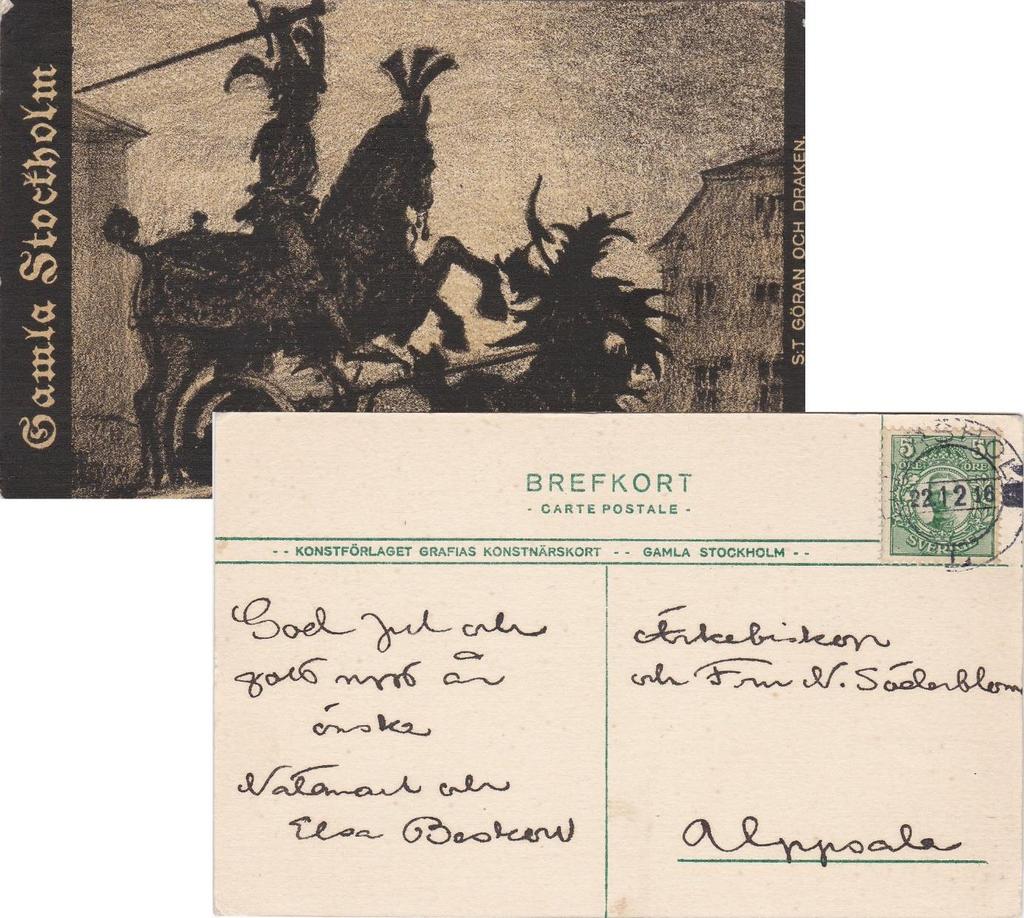 Gamla Stockholm
S:T GÖRAN OCH DRAKEN.
BREFKORT
- CARTE POSTALE -
-- KONSTFÖRLAGET GRAFIAS KONSTNÄRSKORT -- GAMLA STOCKHOLM --
5 5
ÖRE ÖRE
SVERIGE
22 12 16
God Jul och
gott nytt år
önska
Natanael och
Elsa Beskow
Ärkebiskop
och Fru N. Söderblom
Uppsala